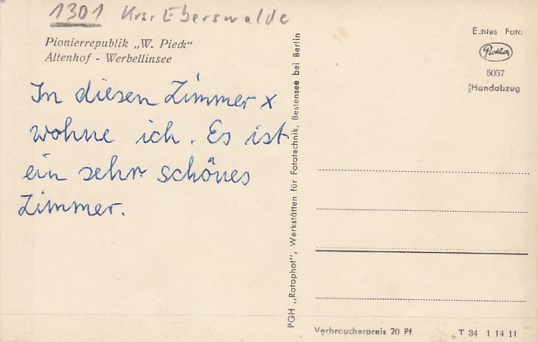 1301 Krs. Eberswalde
Pionierrepublik „W. Pieck“
Altenhof - Werbellinsee
In diesen Zimmer x
wohne ich. Es ist
ein sehr schönes
Zimmer.
PGH „Rotophot“, Werkstätten für Fototechnik, Bestensee bei Berlin
Echtes Foto
5057
Handabzug
Verbraucherpreis 20 Pf
T 34 1 14 11